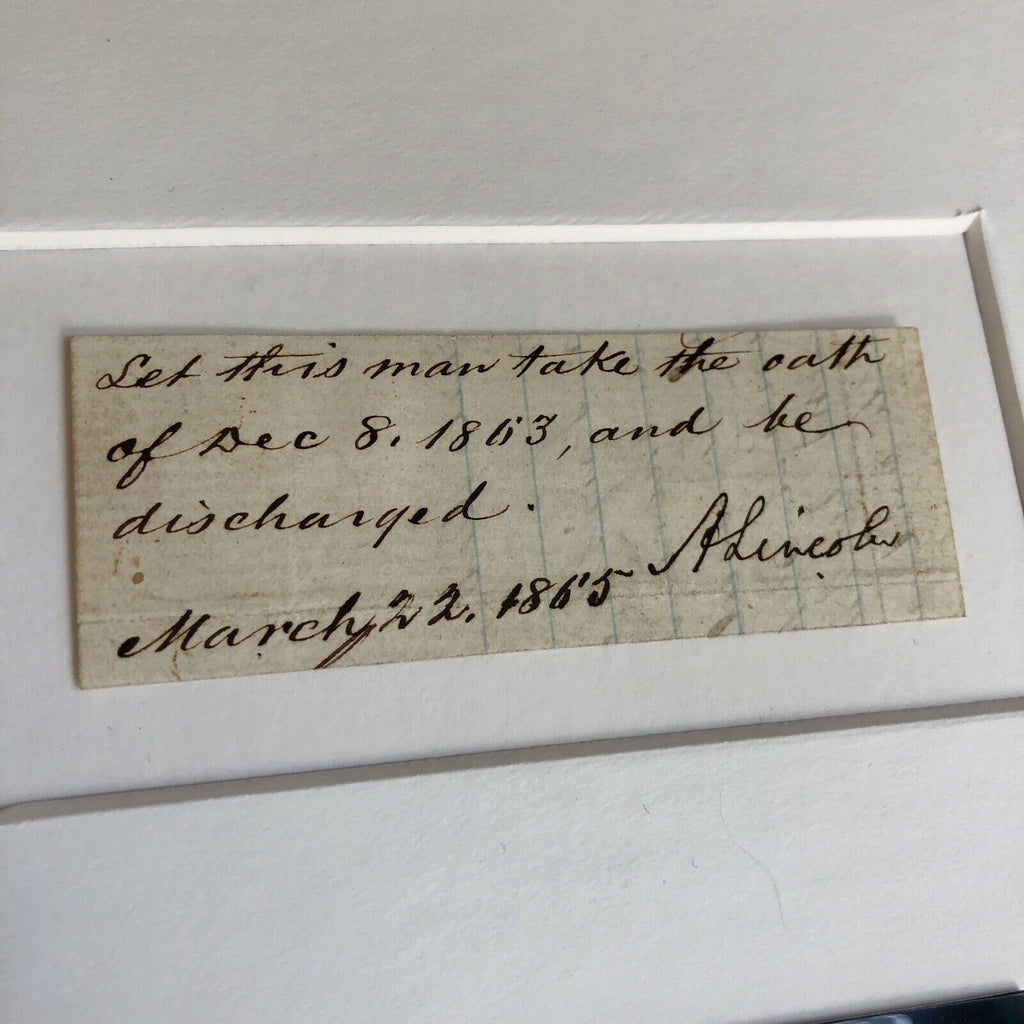 Let this man take the oath
of Dec 8. 1863, and be
discharged.
A Lincoln
March 22. 1865